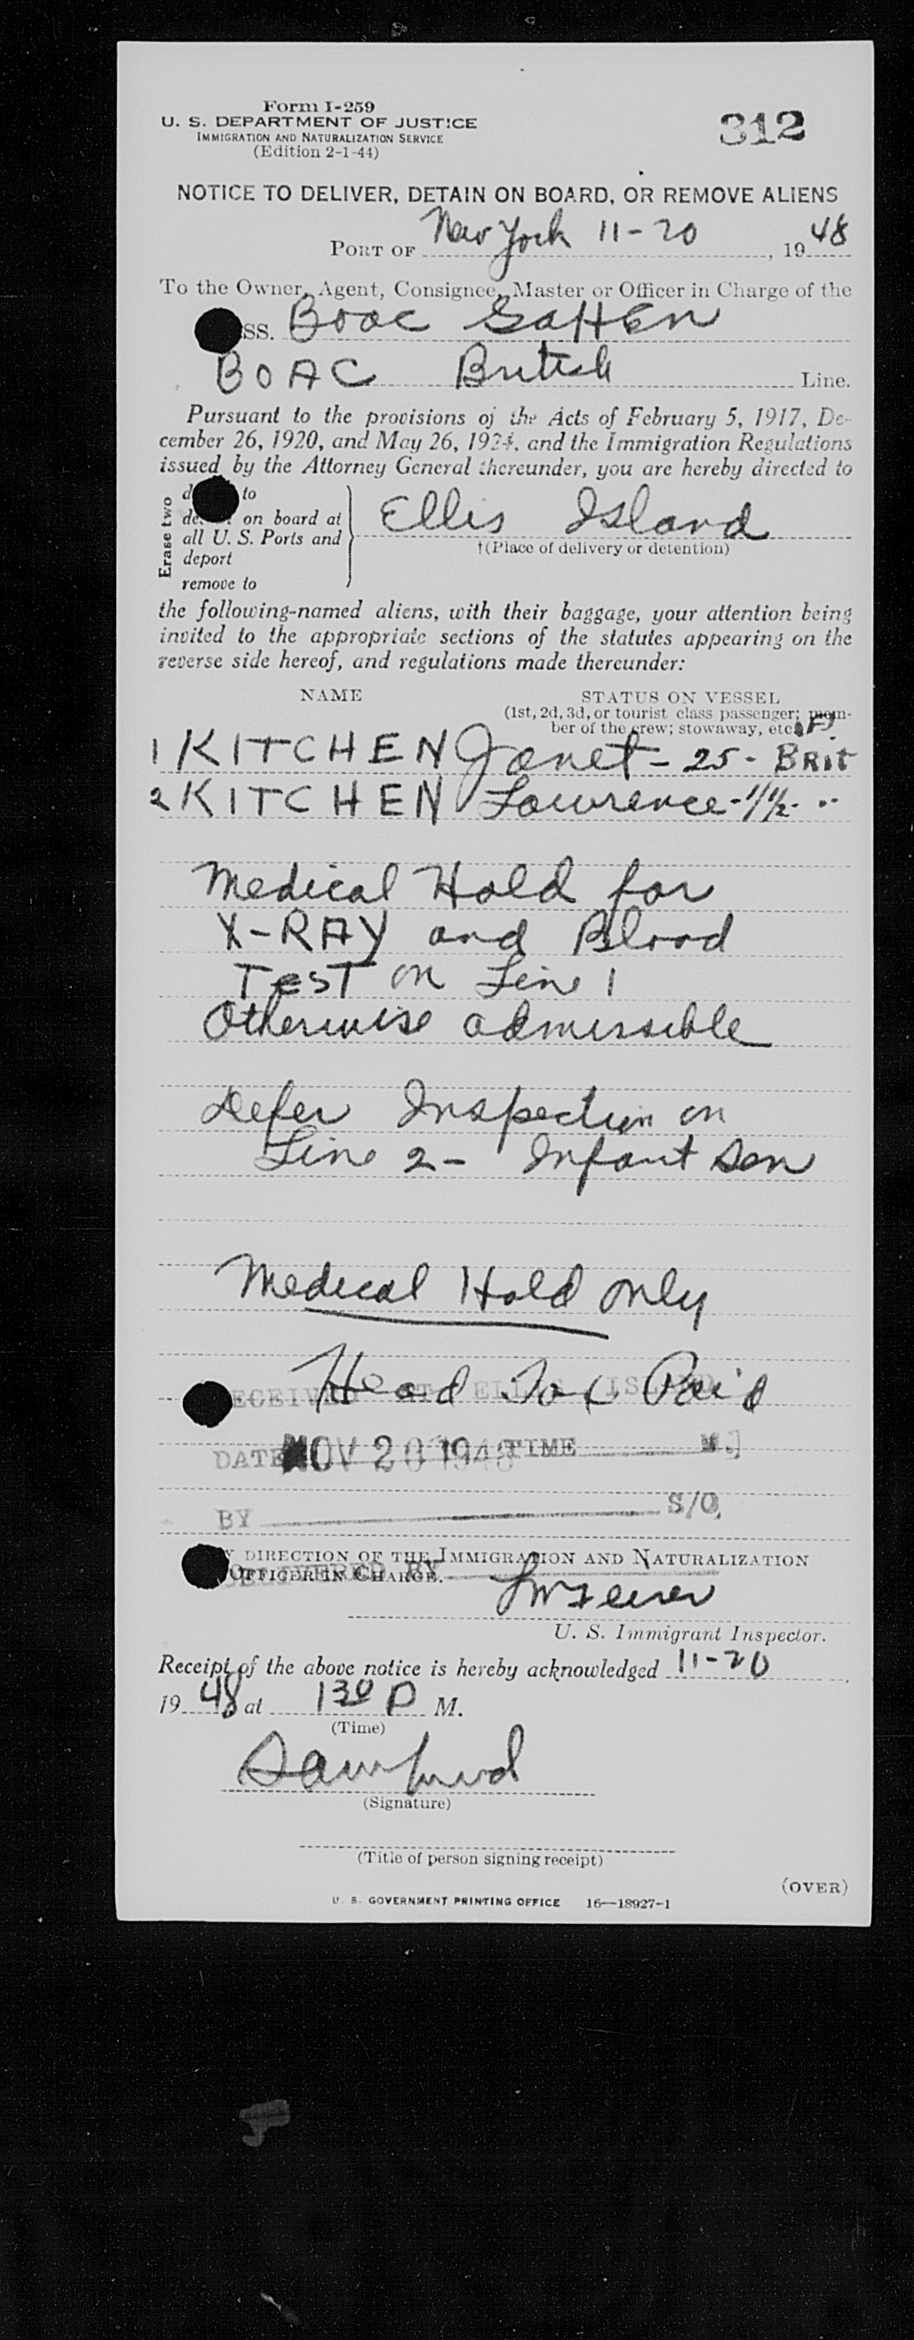 Form I-259
U. S. DEPARTMENT OF JUSTICE
IMMIGRATION AND NATURALIZATION SERVICE
(Edition 2-1-44)
312
NOTICE TO DELIVER, DETAIN ON BOARD, OR REMOVE ALIENS
PORT OF New York 11-20, 1948
To the Owner, Agent, Consignee, Master or Officer in Charge of the
SS. BOAC GAHEN
BOAC British Line.
Pursuant to the provisions of the Acts of February 5, 1917, De-
cember 26, 1920, and May 26, 1924, and the Immigration Regulations
issued by the Attorney General thereunder, you are hereby directed to
Erase two
to
on board at
all U. S. Ports and
deport
remove to
Ellis Island
†(Place of delivery or detention)
the following-named aliens, with their baggage, your attention being
invited to the appropriate sections of the statutes appearing on the
reverse side hereof, and regulations made thereunder:
NAME STATUS ON VESSEL
(1st, 2d, 3d, or tourist class passenger; mem-
ber of the crew; stowaway, etc.)
1 KITCHEN Janet - 25 - BRIT
2 KITCHEN Lawrence - 1 1/2 - "
Medical Hold for
X-RAY and Blood
TEST on Line 1
Otherwise admissible
Defer Inspection on
Line 2 - Infant son
Medical Hold only
Head Tax Paid
RECEIVED AT ELLIS ISLAND
DATE NOV 20 1948 TIME M.
BY S/O,
BY DIRECTION OF THE IMMIGRATION AND NATURALIZATION
OFFICER IN CHARGE.
DELIVERED BY
U. S. Immigrant Inspector.
Receipt of the above notice is hereby acknowledged 11-20
1948 at 130 P M.
(Time)
(Signature)
(Title of person signing receipt)
(OVER)
U. S. GOVERNMENT PRINTING OFFICE 16—18927-1